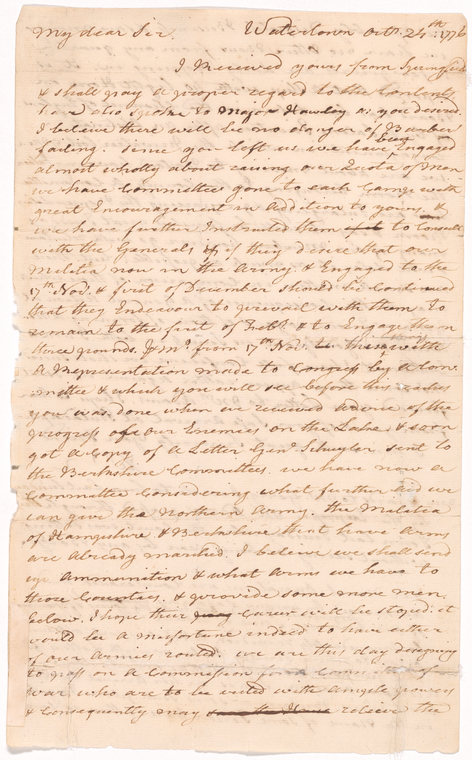 My dear Sir. Watertown Octr. 24th: 1776
I Received yours from Springfield
& shall pay a proper regard to the Contents
have also spoke to Major Hawley as you desired
I believe there will be no danger of Barber
failing. Since you left us we have been Engaged
almost wholly about raising our Quota of men
we have Committees gone to each Camp with
great Encouragement in Addition to yours, &
we have further Instructed them to Consult
with the Generals & if they desire that our
Militia now in the Army & Engaged to the
17th. Novr. & first of December should be Continued
that they Endeavour to prevail with them to
remain to the first of Febr. & to Engage them
three pounds. Pr. Mo. from 17th Nov. with
A Representation made to Congress by a Com-
mittee & which you will see before this reaches
you was done when we received advice of the
progress of our Enemies on the Lake & soon
got a Copy of a Letter Genl. Schuyler sent to
the Berkshire Committees. we have now a
Committee Considering what further aid we
can give the Northern Army. the Militia
of Hampshire & Berkshire that have Arms
are already marched. I believe we shall send
up Ammunition & what Arms we have to
those Counties, & provide some more men
below. I hope their Career will be stoped. it
would be a misfortune indeed to have either
of our Armies routed. we are this day designing
to pass on a Commission for a Committee of
war who are to be vested with ample powers
& Consequently may relieve the